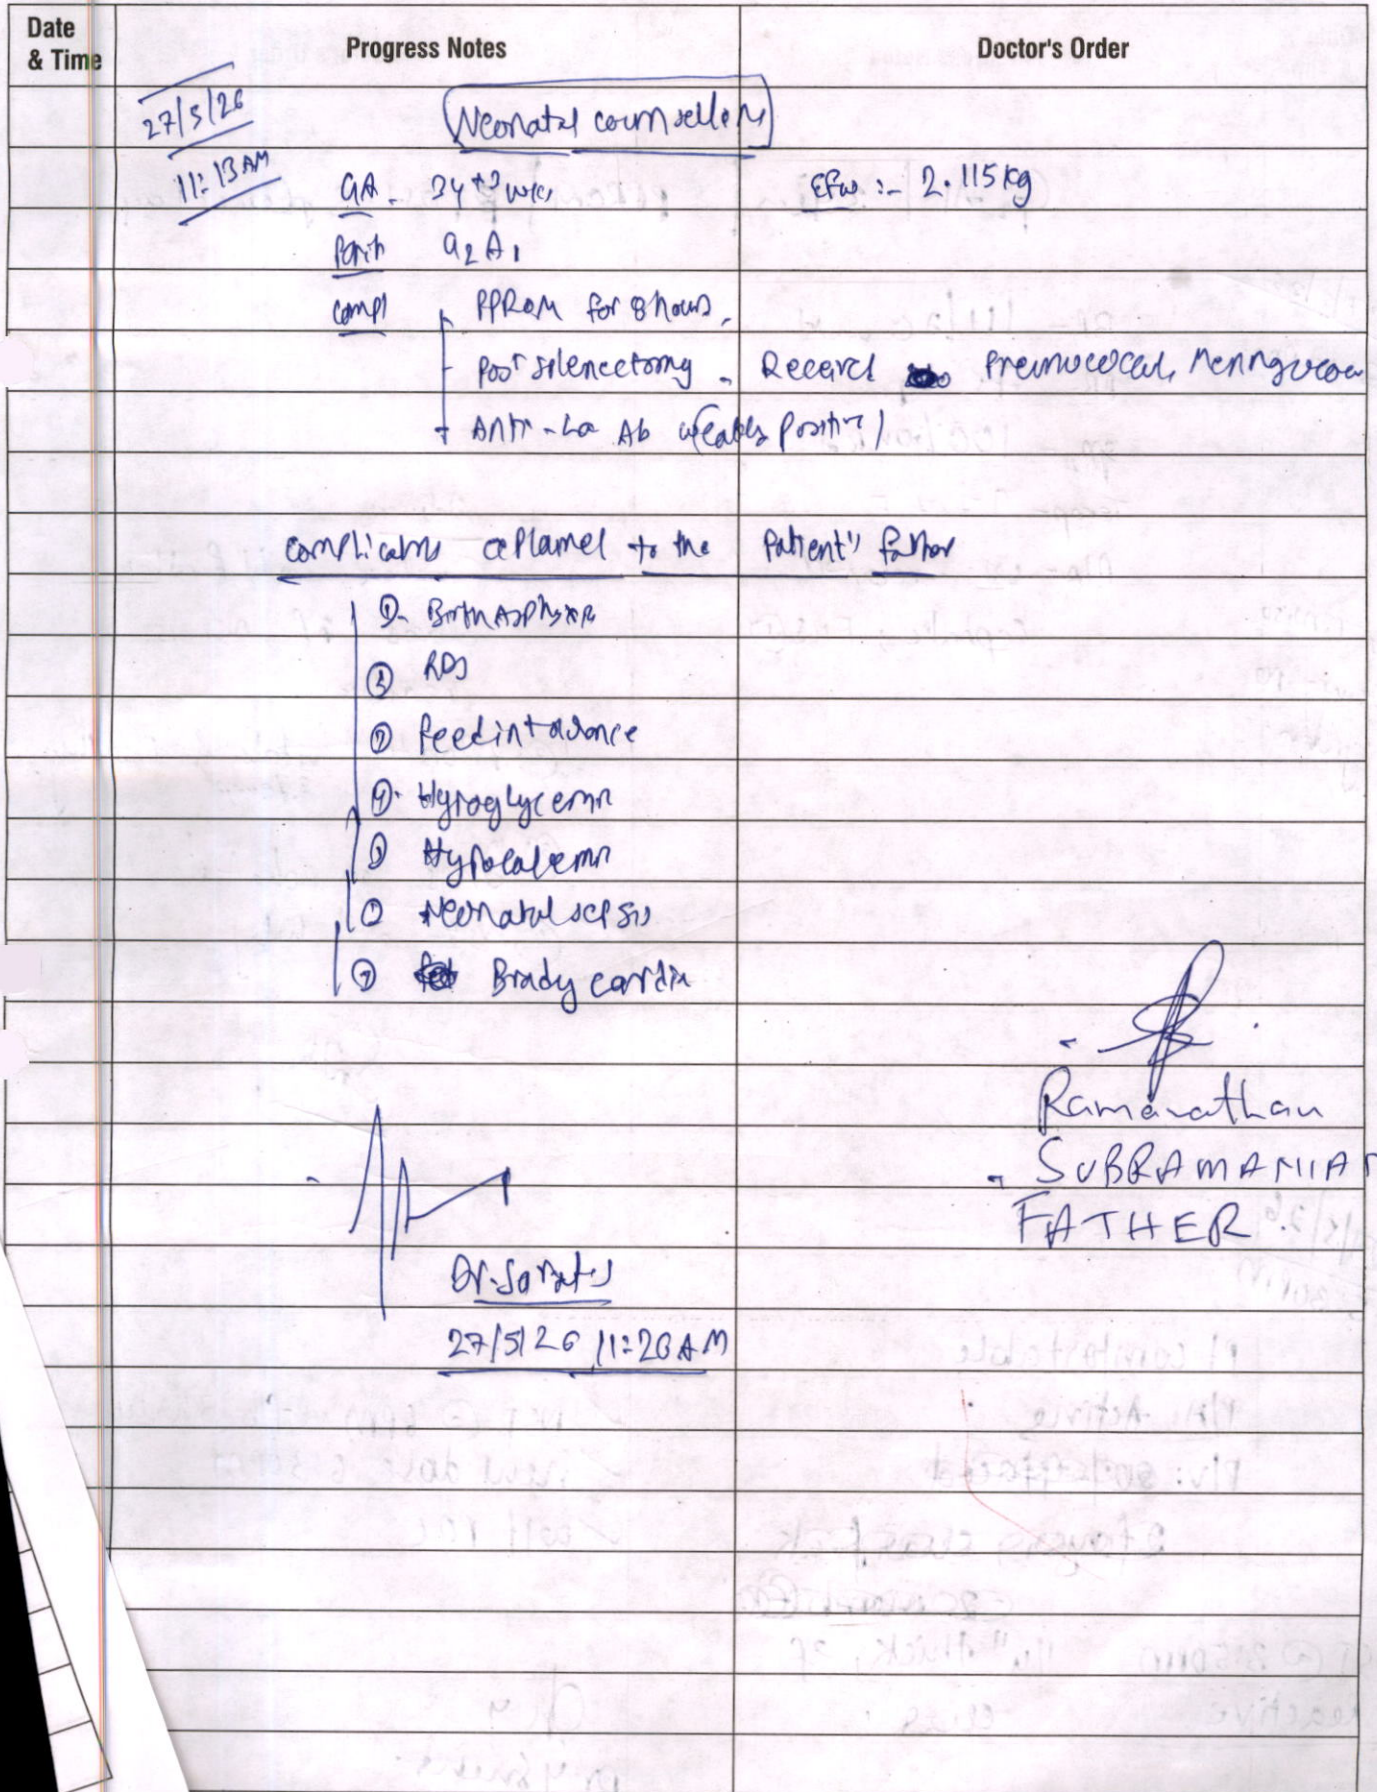 Date & Time Progress Notes Doctor's Order
27/5/26
11:13 AM
Neonatal counselling
GA - 34+3 wks EFW :- 2.115kg
Parity G2A1
Compl - PPROM for 8 hours.
- Post splenectomy - Received Pneumococcal, Meningococcal
- Anti-La Ab (Weakly Positive)
Complications explained to the Patient's father
① Birth Asphyxia
② RDS
③ Feed intolerance
④ Hypoglycemia
⑤ Hypocalcemia
Neonatal sepsis
⑦ Bradycardia
Ramanathan
SUBRAMANIAN
FATHER
27/5/26 11:20 AM